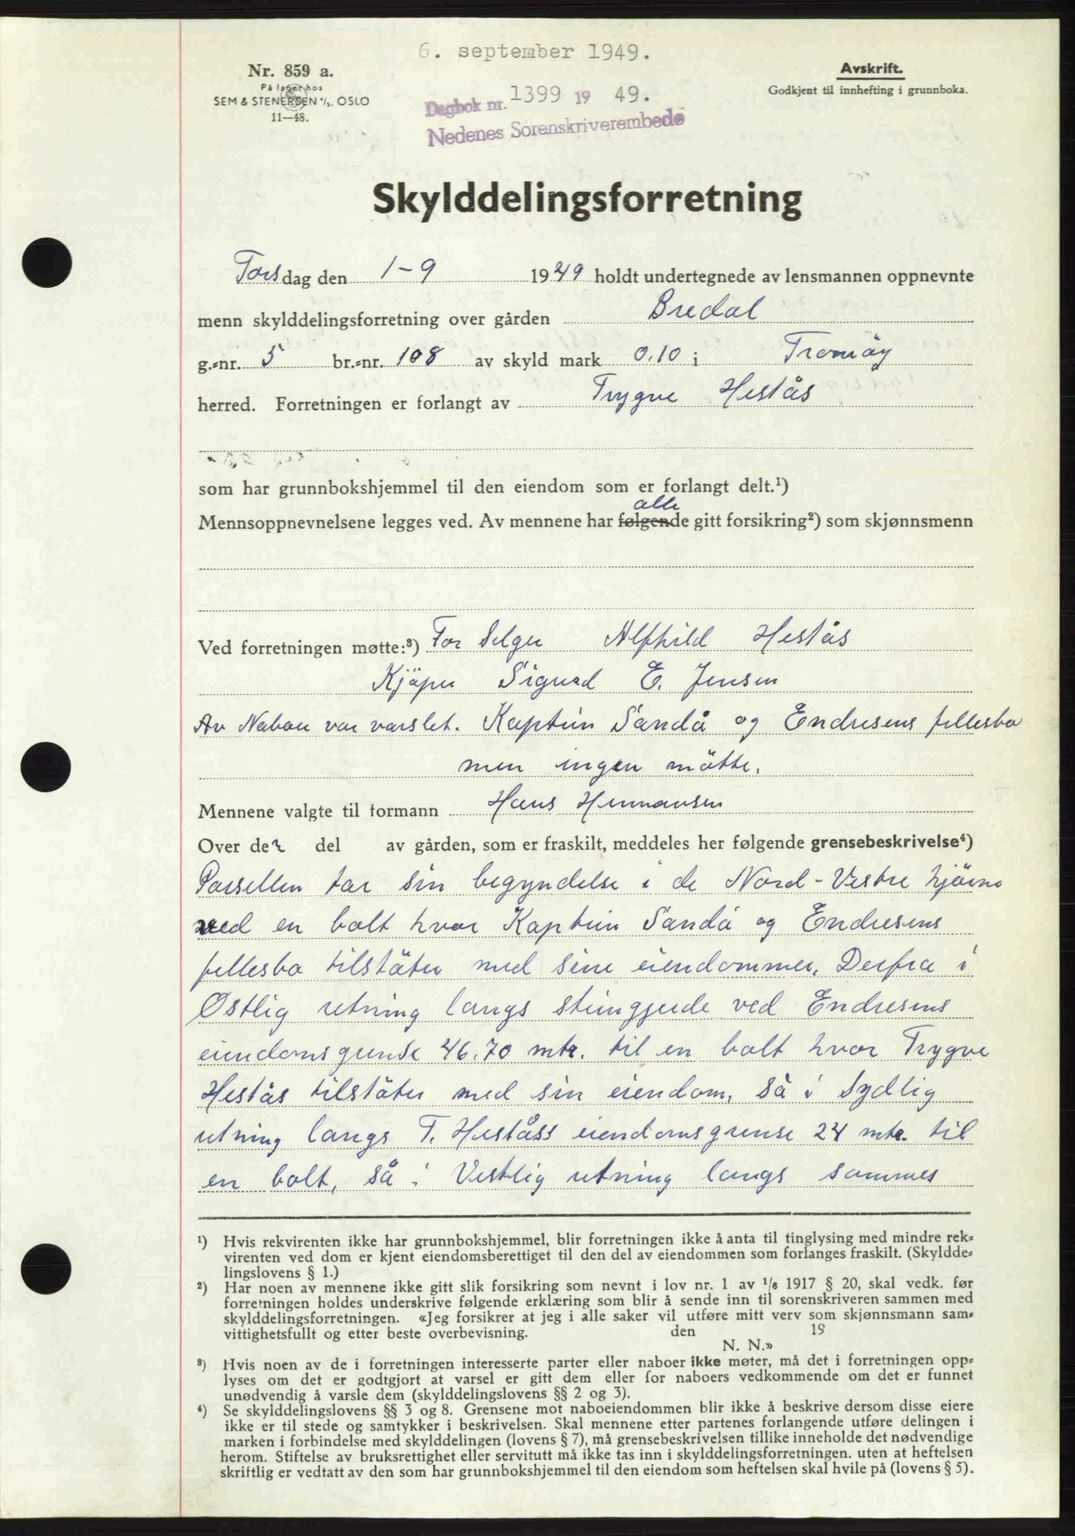 6. september 1949.
Nr. 859 a.
På lager hos
SEM & STENERSEN A/S. OSLO
11—48.
Avskrift.
Godkjent til innhefting i grunnboka.
Dagbok nr. 1399 19 49.
Nedenes Sorenskriverembede
Skylddelingsforretning
Torsdag den 1-9 1949 holdt undertegnede av lensmannen oppnevnte
menn skylddelingsforretning over gården Bredal
g.-nr. 5 br.-nr. 108 av skyld mark 0.10 i Tromöy
herred. Forretningen er forlangt av Trygve Hestås
som har grunnbokshjemmel til den eiendom som er forlangt delt.¹)
alle
Mennsoppnevnelsene legges ved. Av mennene har følgende gitt forsikring²) som skjønnsmenn
Ved forretningen møtte:³) For Selger Alfhild Hestås
Kjöper Sigurd E. Jensen
Av Naboer var varslet. Kaptein Sandå og Endresens fellesbo
men ingen mötte.
Mennene valgte til formann Hans Hermansen
Over den del av gården, som er fraskilt, meddeles her følgende grensebeskrivelse⁴)
Parsellen tar sin begyndelse i de Nord-Vestre hjörne
ved en bolt hvor Kaptein Sandå og Endresens
fellesbo tilstöter med sine eiendommer. Derfra i
Østlig retning langs steingjerde ved Endresens
eiendomsgrense 46.70 mtr. til en bolt hvor Trygve
Hestås tilstöter med sin eiendom, så i Sydlig
retning langs T. Heståss eiendomsgrense 24 mtr. til
en bolt, så i Vestlig retning langs sammes
¹) Hvis rekvirenten ikke har grunnbokshjemmel, blir forretningen ikke å anta til tinglysing med mindre rek-
virenten ved dom er kjent eiendomsberettiget til den del av eiendommen som forlanges fraskilt. (Skyldde-
lingslovens § 1.)
²) Har noen av mennene ikke gitt slik forsikring som nevnt i lov nr. 1 av 1/6 1917 § 20, skal vedk. før
forretningen holdes underskrive følgende erklæring som blir å sende inn til sorenskriveren sammen med
skylddelingsforretningen. «Jeg forsikrer at jeg i alle saker vil utføre mitt verv som skjønnsmann sam-
vittighetsfullt og etter beste overbevisning. den 19
N. N.»
³) Hvis noen av de i forretningen interesserte parter eller naboer ikke møter, må det i forretningen opp-
lyses om det er godtgjort at varsel er gitt dem eller for naboers vedkommende om det er funnet
unødvendig å varsle dem (skylddelingslovens §§ 2 og 3).
⁴) Se skylddelingslovens §§ 3 og 8. Grensene mot naboeiendommen blir ikke å beskrive dersom disse eiere
ikke er til stede og samtykker i beskrivelsen. Skal mennene etter partenes forlangende utføre delingen i
marken i forbindelse med skylddelingen (lovens § 7), må grensebeskrivelsen tillike inneholde det nødvendige
herom. Stiftelse av bruksrettighet eller servitutt må ikke tas inn i skylddelingsforretningen. uten at heftelsen
skriftlig er vedtatt av den som har grunnbokshjemmel til den eiendom som heftelsen skal hvile på (lovens § 5).